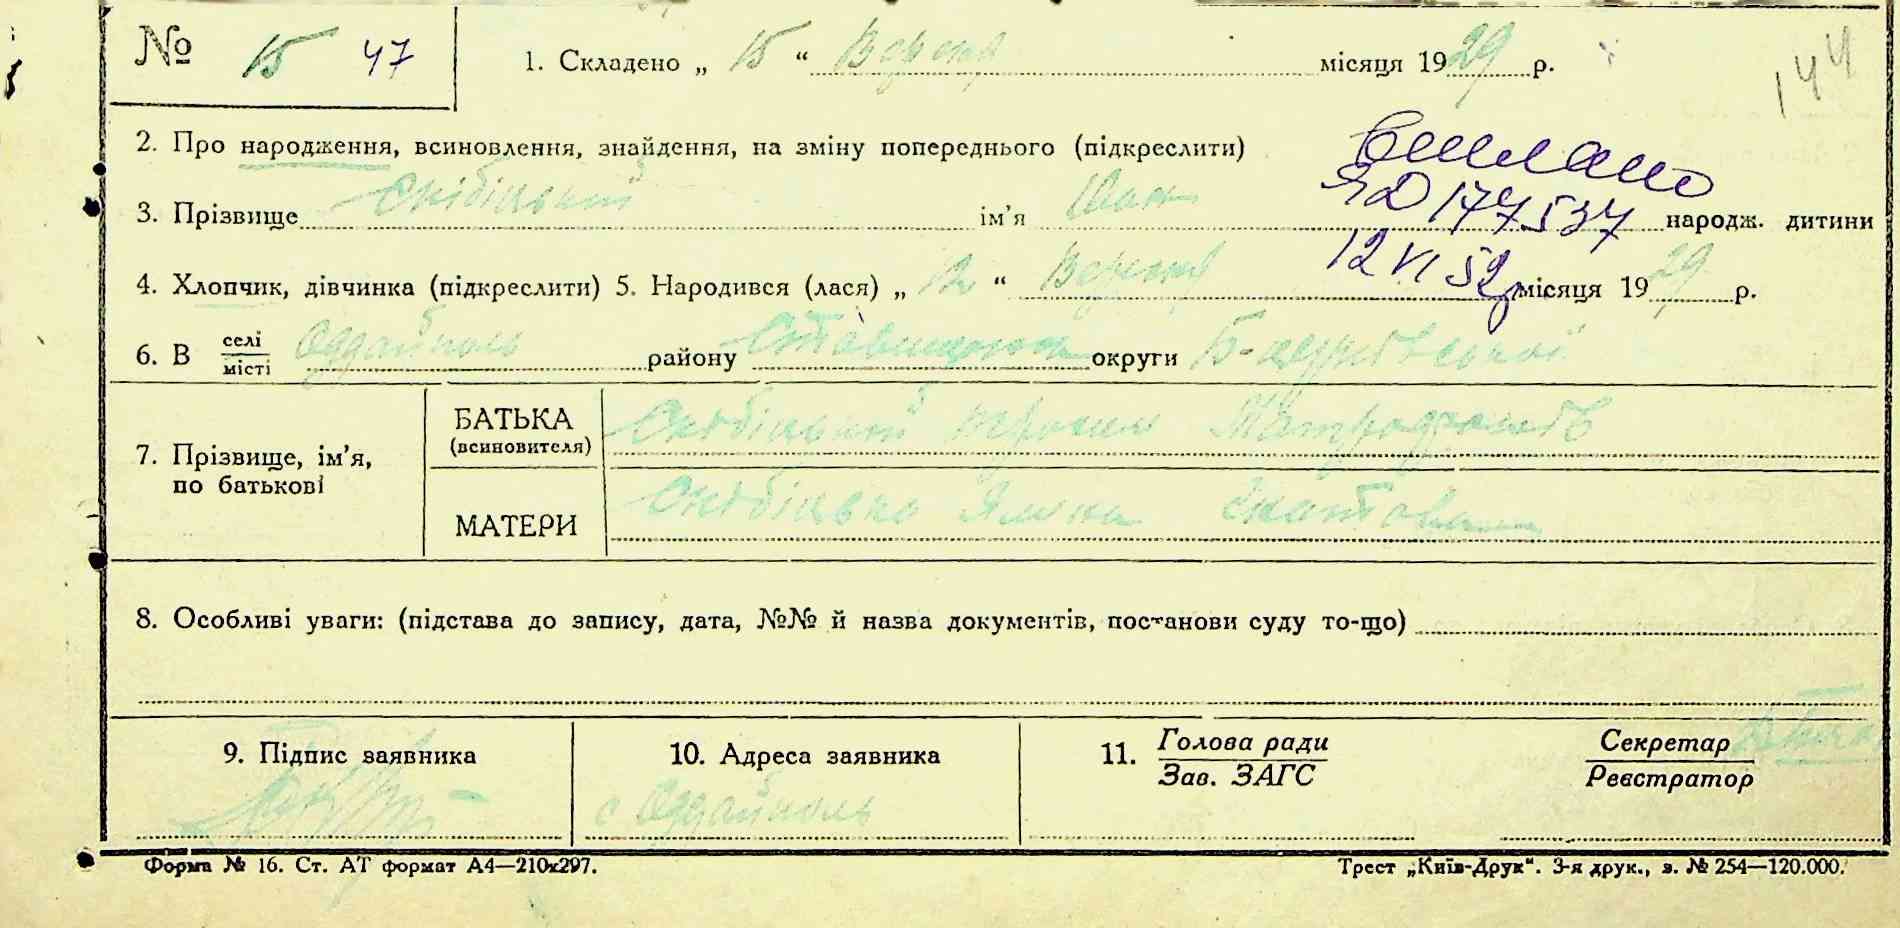 № 15 47 1. Складено „ 15 “ Вересня місяця 1929 р. 144
2. Про народження, всиновлення, знайдення, на зміну попереднього (підкреслити) Вислано
3. Прізвище Скібіцький ім’я Іван ЯД 177537 народж. дитини
4. Хлопчик, дівчинка (підкреслити) 5. Народився (лася) „ 12 “ Вересня 12 VI 52 місяця 1929 р.
6. В селі/місті Оддайполь району Ставищан округи Б-церківської
7. Прізвище, ім’я, по батькові
БАТЬКА (всиновителя) Скібіцький Трохим
МАТЕРИ Скібіцька
8. Особливі уваги: (підстава до запису, дата, №№ й назва документів, постанови суду то-що)
9. Підпис заявника 10. Адреса заявника 11. Голова ради/Зав. ЗАГС Секретар/Реєстратор
с Оддайполь
Форма № 16. Ст. АТ формат А4—210х297. Трест „Київ-Друк“. 3-я друк., з. № 254—120.000.